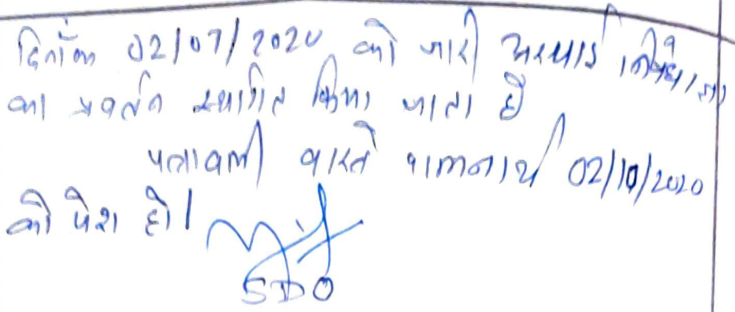 दिनाँक 02/07/2020 को जारी अस्थाई निषेधाज्ञा
का प्रवर्तन स्थगित किया जाता है
पत्रावली वास्ते पालनार्थ 02/10/2020
को पेश हो।
SDO